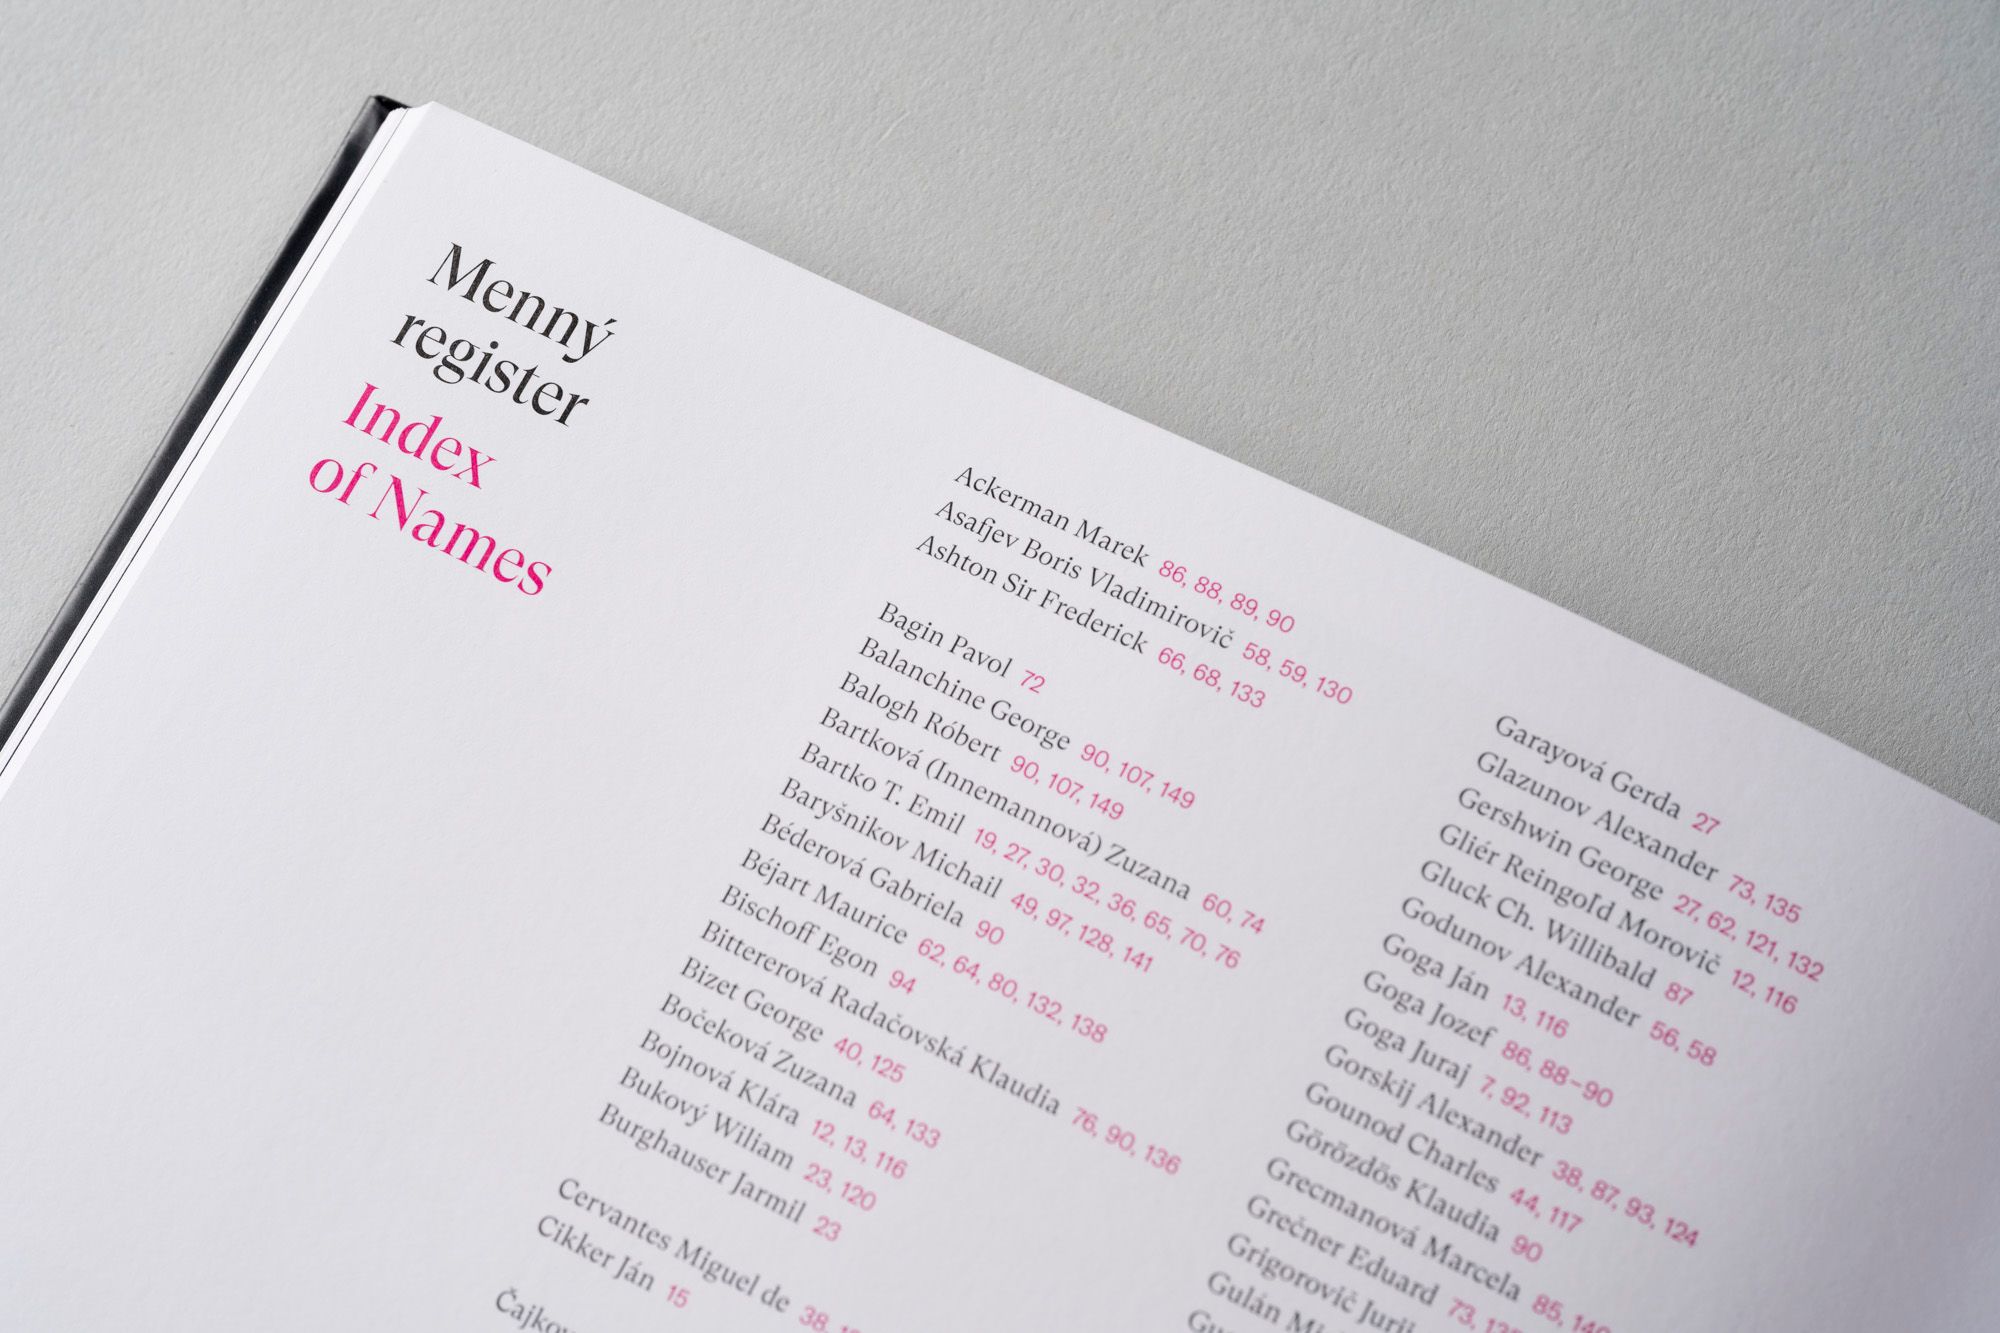 Menný
register
Index
of Names
Ackerman Marek 86, 88, 89, 90
Asafjev Boris Vladimirovič 58, 59, 130
Ashton Sir Frederick 66, 68, 133
Bagin Pavol 72
Balanchine George 90, 107, 149
Balogh Róbert 90, 107, 149
Bartková (Innemannová) Zuzana 60, 74
Bartko T. Emil 19, 27, 30, 32, 36, 65, 70, 76
Baryšnikov Michail 49, 97, 128, 141
Béderová Gabriela 90
Béjart Maurice 62, 64, 80, 132, 138
Bischoff Egon 94
Bittererová Radačovská Klaudia 76, 90, 136
Bizet George 40, 125
Bočeková Zuzana 64, 133
Bojnová Klára 12, 13, 116
Bukový Wiliam 23, 120
Burghauser Jarmil 23
Cervantes Miguel de 38,
Cikker Ján 15
Garayová Gerda 27
Glazunov Alexander 73, 135
Gershwin George 27, 62, 121, 132
Gliér Reingoľd Morovič 12, 116
Gluck Ch. Willibald 87
Godunov Alexander 56, 58
Goga Ján 13, 116
Goga Jozef 86, 88–90
Goga Juraj 7, 92, 113
Gorskij Alexander 38, 87, 93, 124
Gounod Charles 44, 117
Görözdös Klaudia 90
Grecmanová Marcela 85,
Grečner Eduard 73,
Grigorovič Jurij
Gulán